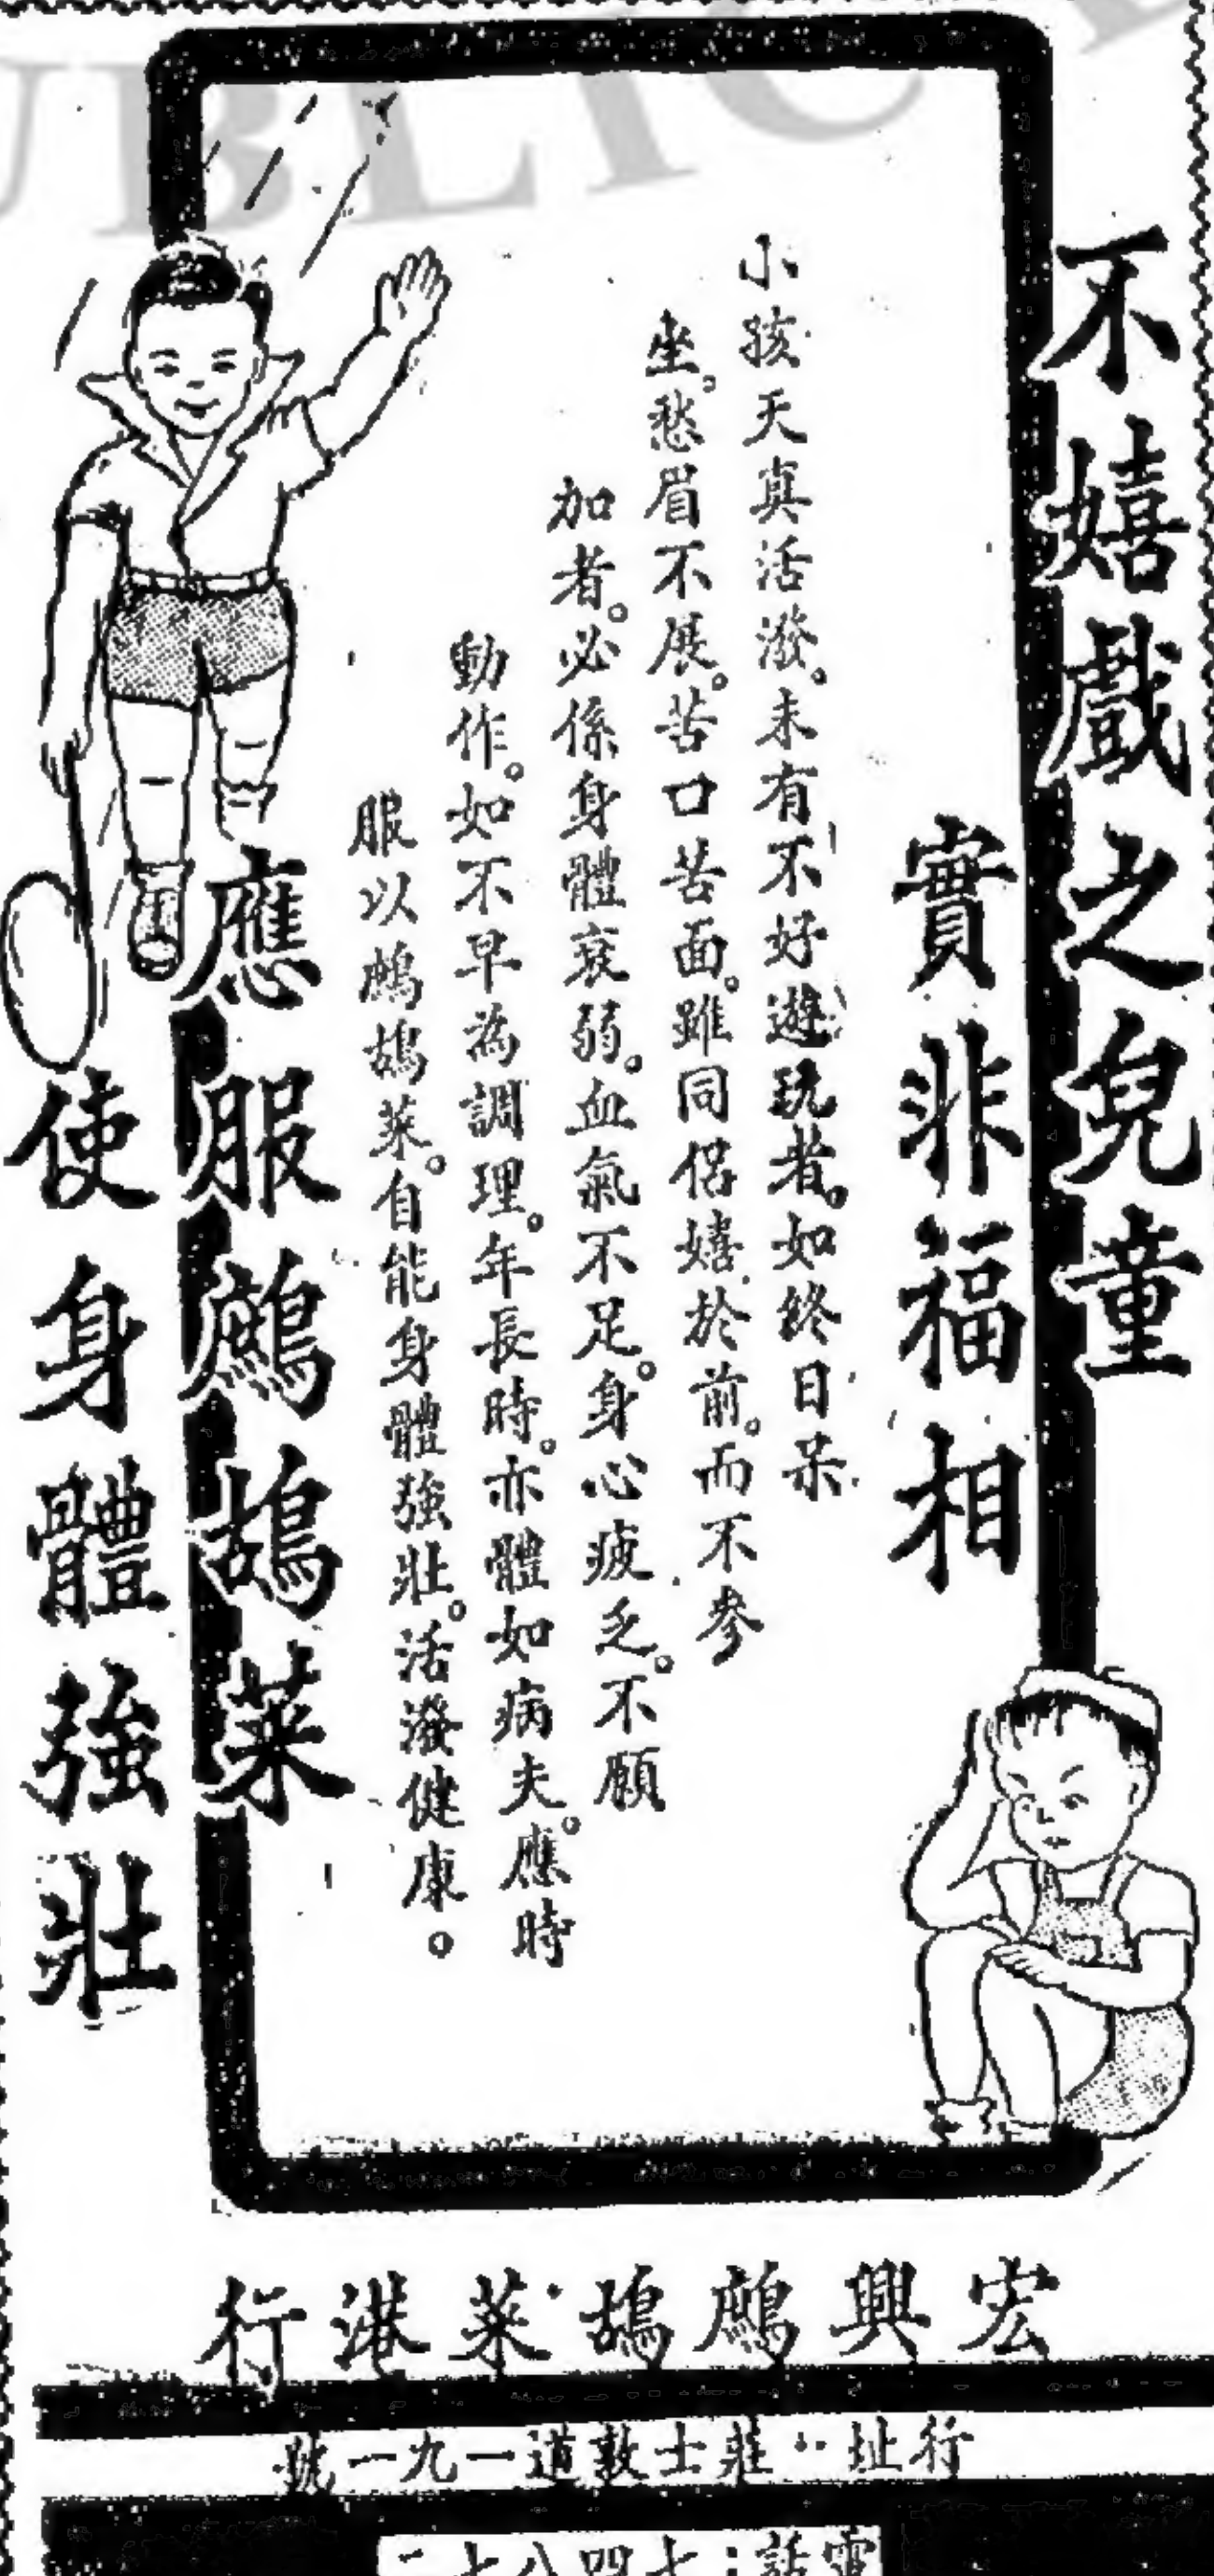 不嬉戲之兒童
實非福相
小孩天真活潑。未有不好遊玩者。如終日呆
坐。愁眉不展。苦口苦面。雖同侶嬉於前。而不參
加者。必係身體衰弱。血氣不足。身心疲乏。不願
動作。如不早為調理。年長時。亦體如病夫。應時
服以鷓鴣菜。自能身體強壯。活潑健康。
應服鷓鴣菜
使身體強壯
宏興鷓鴣菜港行
行址：莊士敦道一九一號
電話：七四八七二